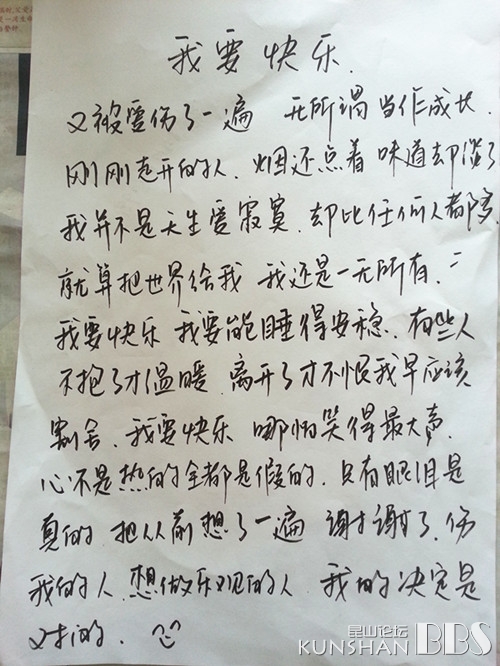 我要快乐.
又被爱伤了一遍 无所谓 当作成长.
刚刚走开的人. 烟还点着 味道却淡了
我并不是天生爱寂寞. 却比任何人都多.
就算把世界给我 我还是一无所有.
我要快乐 我要能睡得安稳. 有些人
不抱了才温暖. 离开了才不恨我早应该
割舍. 我要快乐 哪怕笑得最大声.
心不是热的全都是假的. 只有眼泪是
真的. 把从前想了一遍 谢谢了. 伤
我的人. 想做乐观的人. 我的决定是
对的.
昆山论坛
KUNSHAN BBS